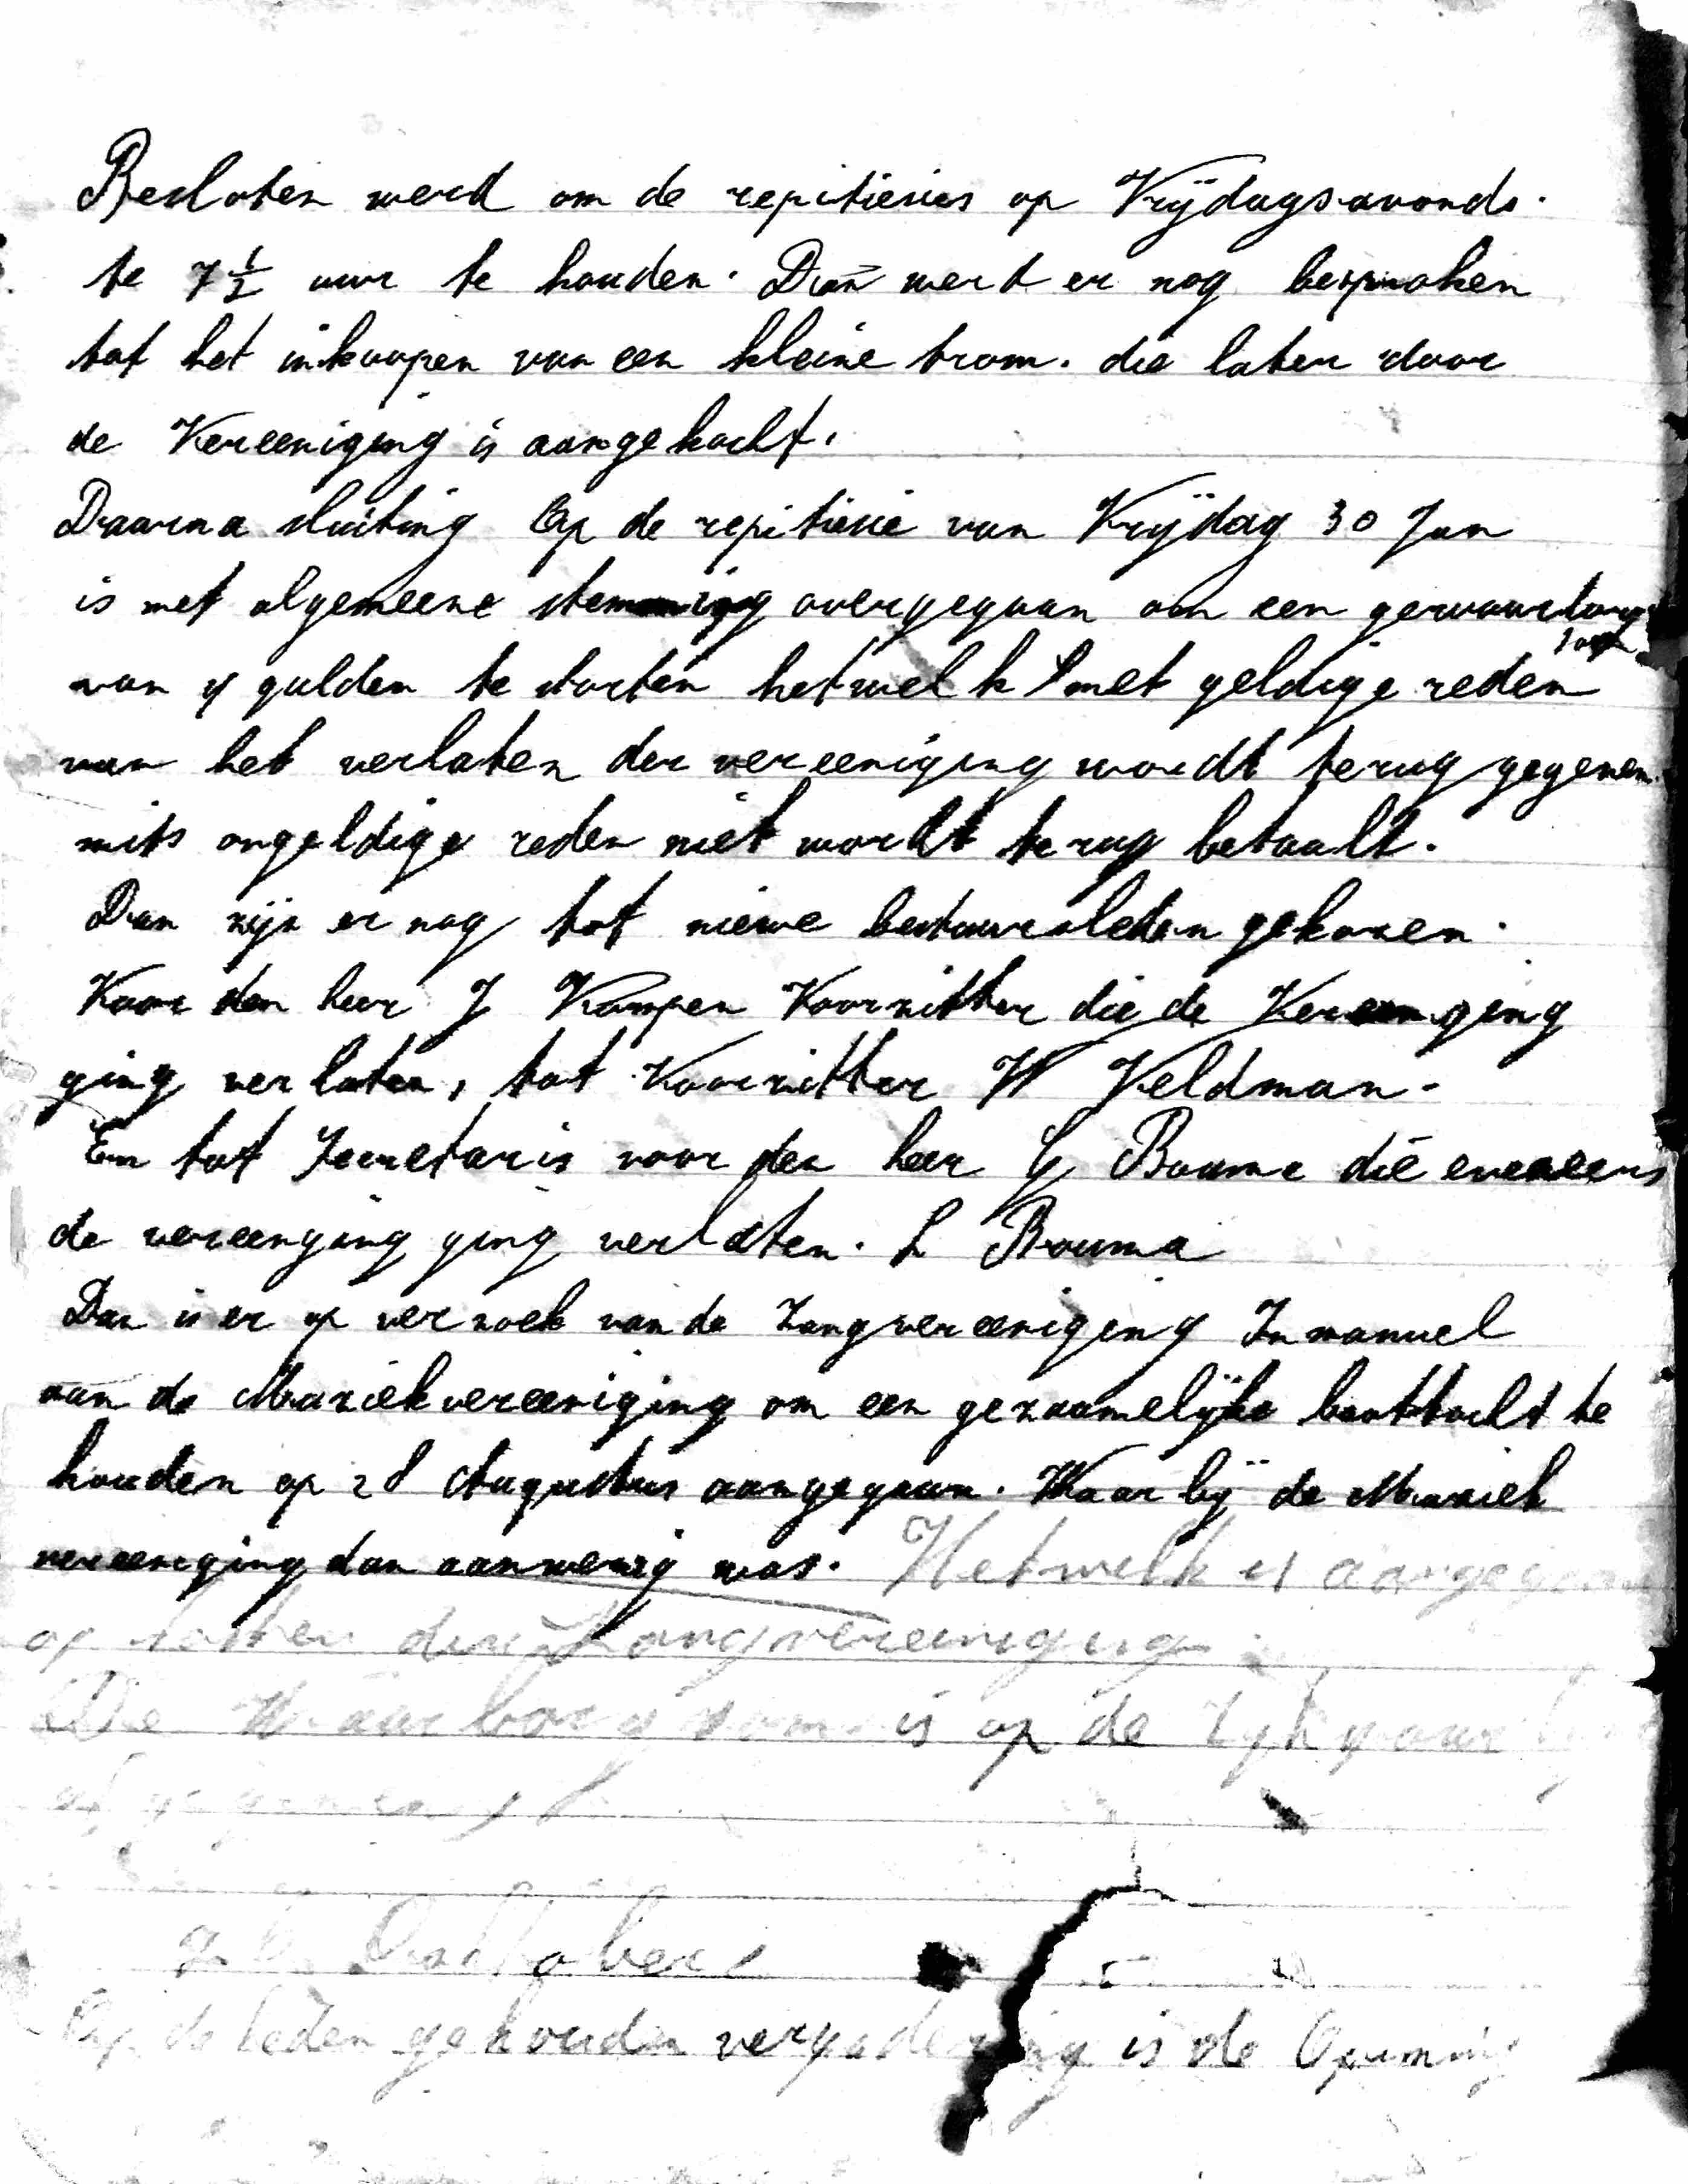 Besloten werd om de repitiesies op Vrijdagsavonds.
te 7½ uur te houden. Dan werd er nog besproken
tot het inkoopen van een kleine trom. die later door
de Vereeniging is aangekocht.
Daarna sluiting Op de repitiesie van Vrijdag 30 Jan
is met algemeene stemming overgegaan om een gewaarborg
som
van gulden te storten hetwelk met geldige reden
van het verlaten der vereeniging wordt terug gegeven
mits ongeldige reden niet wordt terug betaalt.
Dan zijn er nog tot niewe bestuursleden gekozen.
Voor den heer J Kampen Voorzitter die de Vereenging
ging verlaten, tot Voorzitter W Veldman.
En tot Secretaris voor den heer G Bouma die eveneens
de vereenging ging verlaten. L Bouma
Dan is er op verzoek van de Zangvereeniging Inmanuel
aan de Muziekvereeniging om een gezaamelijke boottocht te
houden op 28 Augustus aangegaan. Waar bij de Muziek
vereeniging dan aanwezig was. Hetwelk is aangegaan
op kosten der Zangvereeniging
De Waarborg som is op de
Op de leden gehouden vergadering is de Opening